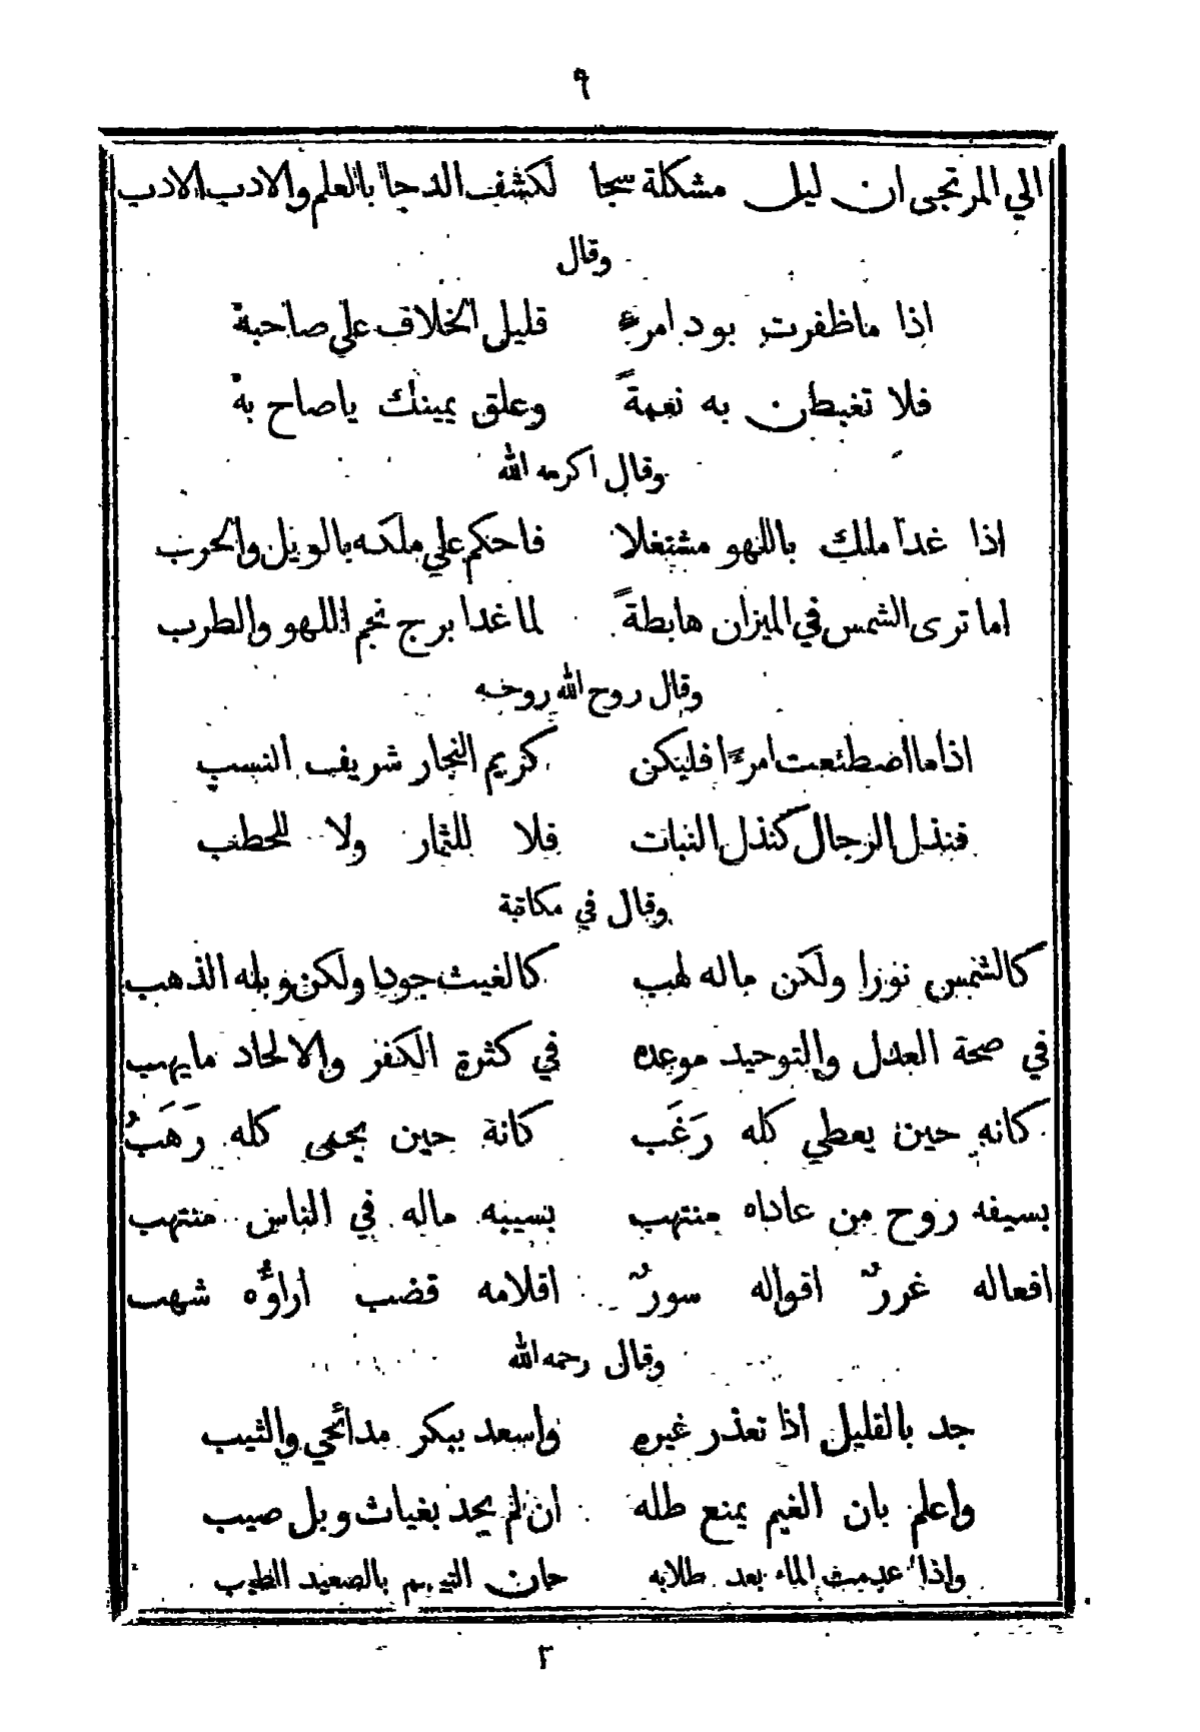 ٩
الي المرتجى ان ليل مشكلة سجا لكشف الدجا بالعلم والادب الادب
وقال
اذا ماظفرت بود امرء قليل الخلاف علي صاحبهْ
فلا تغبطن به نعمةً وعلق يمينك ياصاح بهْ
وقال اكرمه الله
اذا غدا ملك باللهو مشتغلا فاحكم علي ملكه بالويل والحرب
اما ترى الشمس في الميزان هابطةً لما غدا برج نجم اللهو والطرب
وقال روح الله روحه
اذاما اصطنعت امرءًا فليكن كريم النجار شريف النسب
فنذل الرجال كنذل النبات فلا للثمار ولا للحطب
وقال في مكاتبة
كالشمس نورا ولكن ماله لهب كالغيث جودا ولكن وبله الذهب
في صحة العدل والتوحيد موعده في كثرة الكفر والالحاد مايهب
كانه حين يعطي كله رَغَب كانة حين يحمى كله رَهَبُ
بسيفه روح من عاداه منتهب بسيبه ماله في الناس منتهب
افعاله غررٌ اقواله سورٌ اقلامه قضب اراؤُه شهب
وقال رحمه الله
جد بالقليل اذا تعذر غيره واسعد ببكر مدائحي والثيب
واعلم بان الغيم يمنع طله ان لم يجد بغياث وبل صيب
واذا عدمت الماء بعد طلابه حان التيمم بالصعيد الطيب
٢